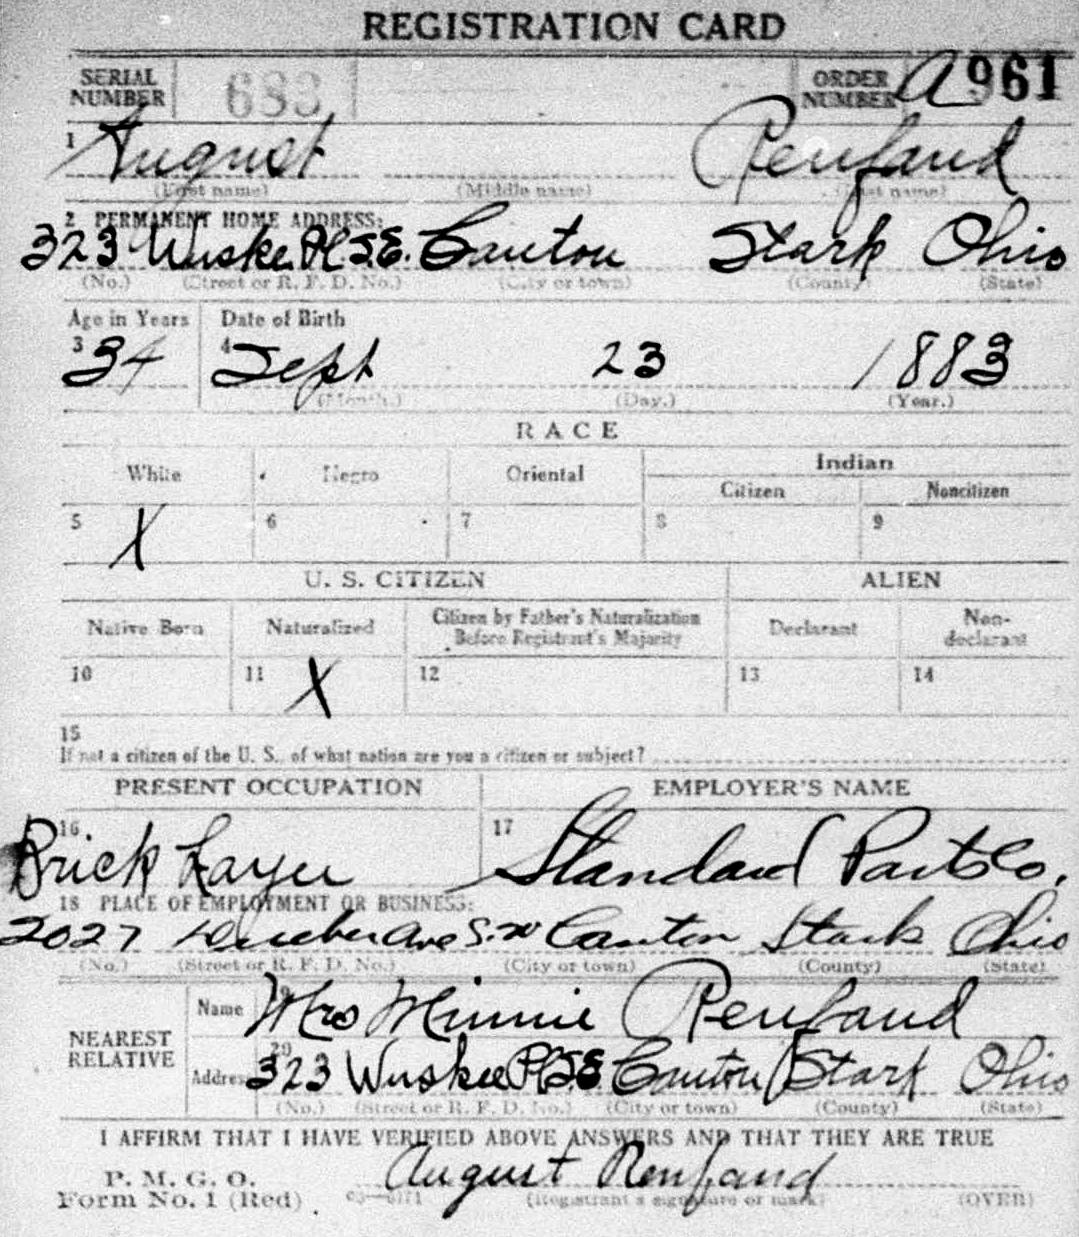 REGISTRATION CARD
SERIAL NUMBER 683 ORDER NUMBER A 961
1 August Renfand
(First name) (Middle name) (Last name)
2 PERMANENT HOME ADDRESS:
323 Pl S.E. Canton Stark Ohio
(No.) (Street or R. F. D. No.) (City or town) (County) (State)
Age in Years Date of Birth
3 34 4 Sept 23 1883
(Month.) (Day.) (Year.)
RACE
White Negro Oriental Indian
Citizen Noncitizen
5 X 6 7 8 9
U. S. CITIZEN ALIEN
Native Born Naturalized Citizen by Father's Naturalization Before Registrant's Majority Declarant Non-declarant
10 11 X 12 13 14
15
If not a citizen of the U. S., of what nation are you a citizen or subject?
PRESENT OCCUPATION EMPLOYER'S NAME
16 Brick Layer 17 Standard Parts Co.
18 PLACE OF EMPLOYMENT OR BUSINESS:
2027 Dueber Ave S.W Canton Stark Ohio
(No.) (Street or R. F. D. No.) (City or town) (County) (State)
NEAREST RELATIVE
Name 19 Mrs Minnie Renfand
Address 20 323 Pl S.E Canton Stark Ohio
(No.) (Street or R. F. D. No.) (City or town) (County) (State)
I AFFIRM THAT I HAVE VERIFIED ABOVE ANSWERS AND THAT THEY ARE TRUE
P. M. G. O.
Form No. 1 (Red) 03—6171 August Renfand
(Registrant's signature or mark) (OVER)